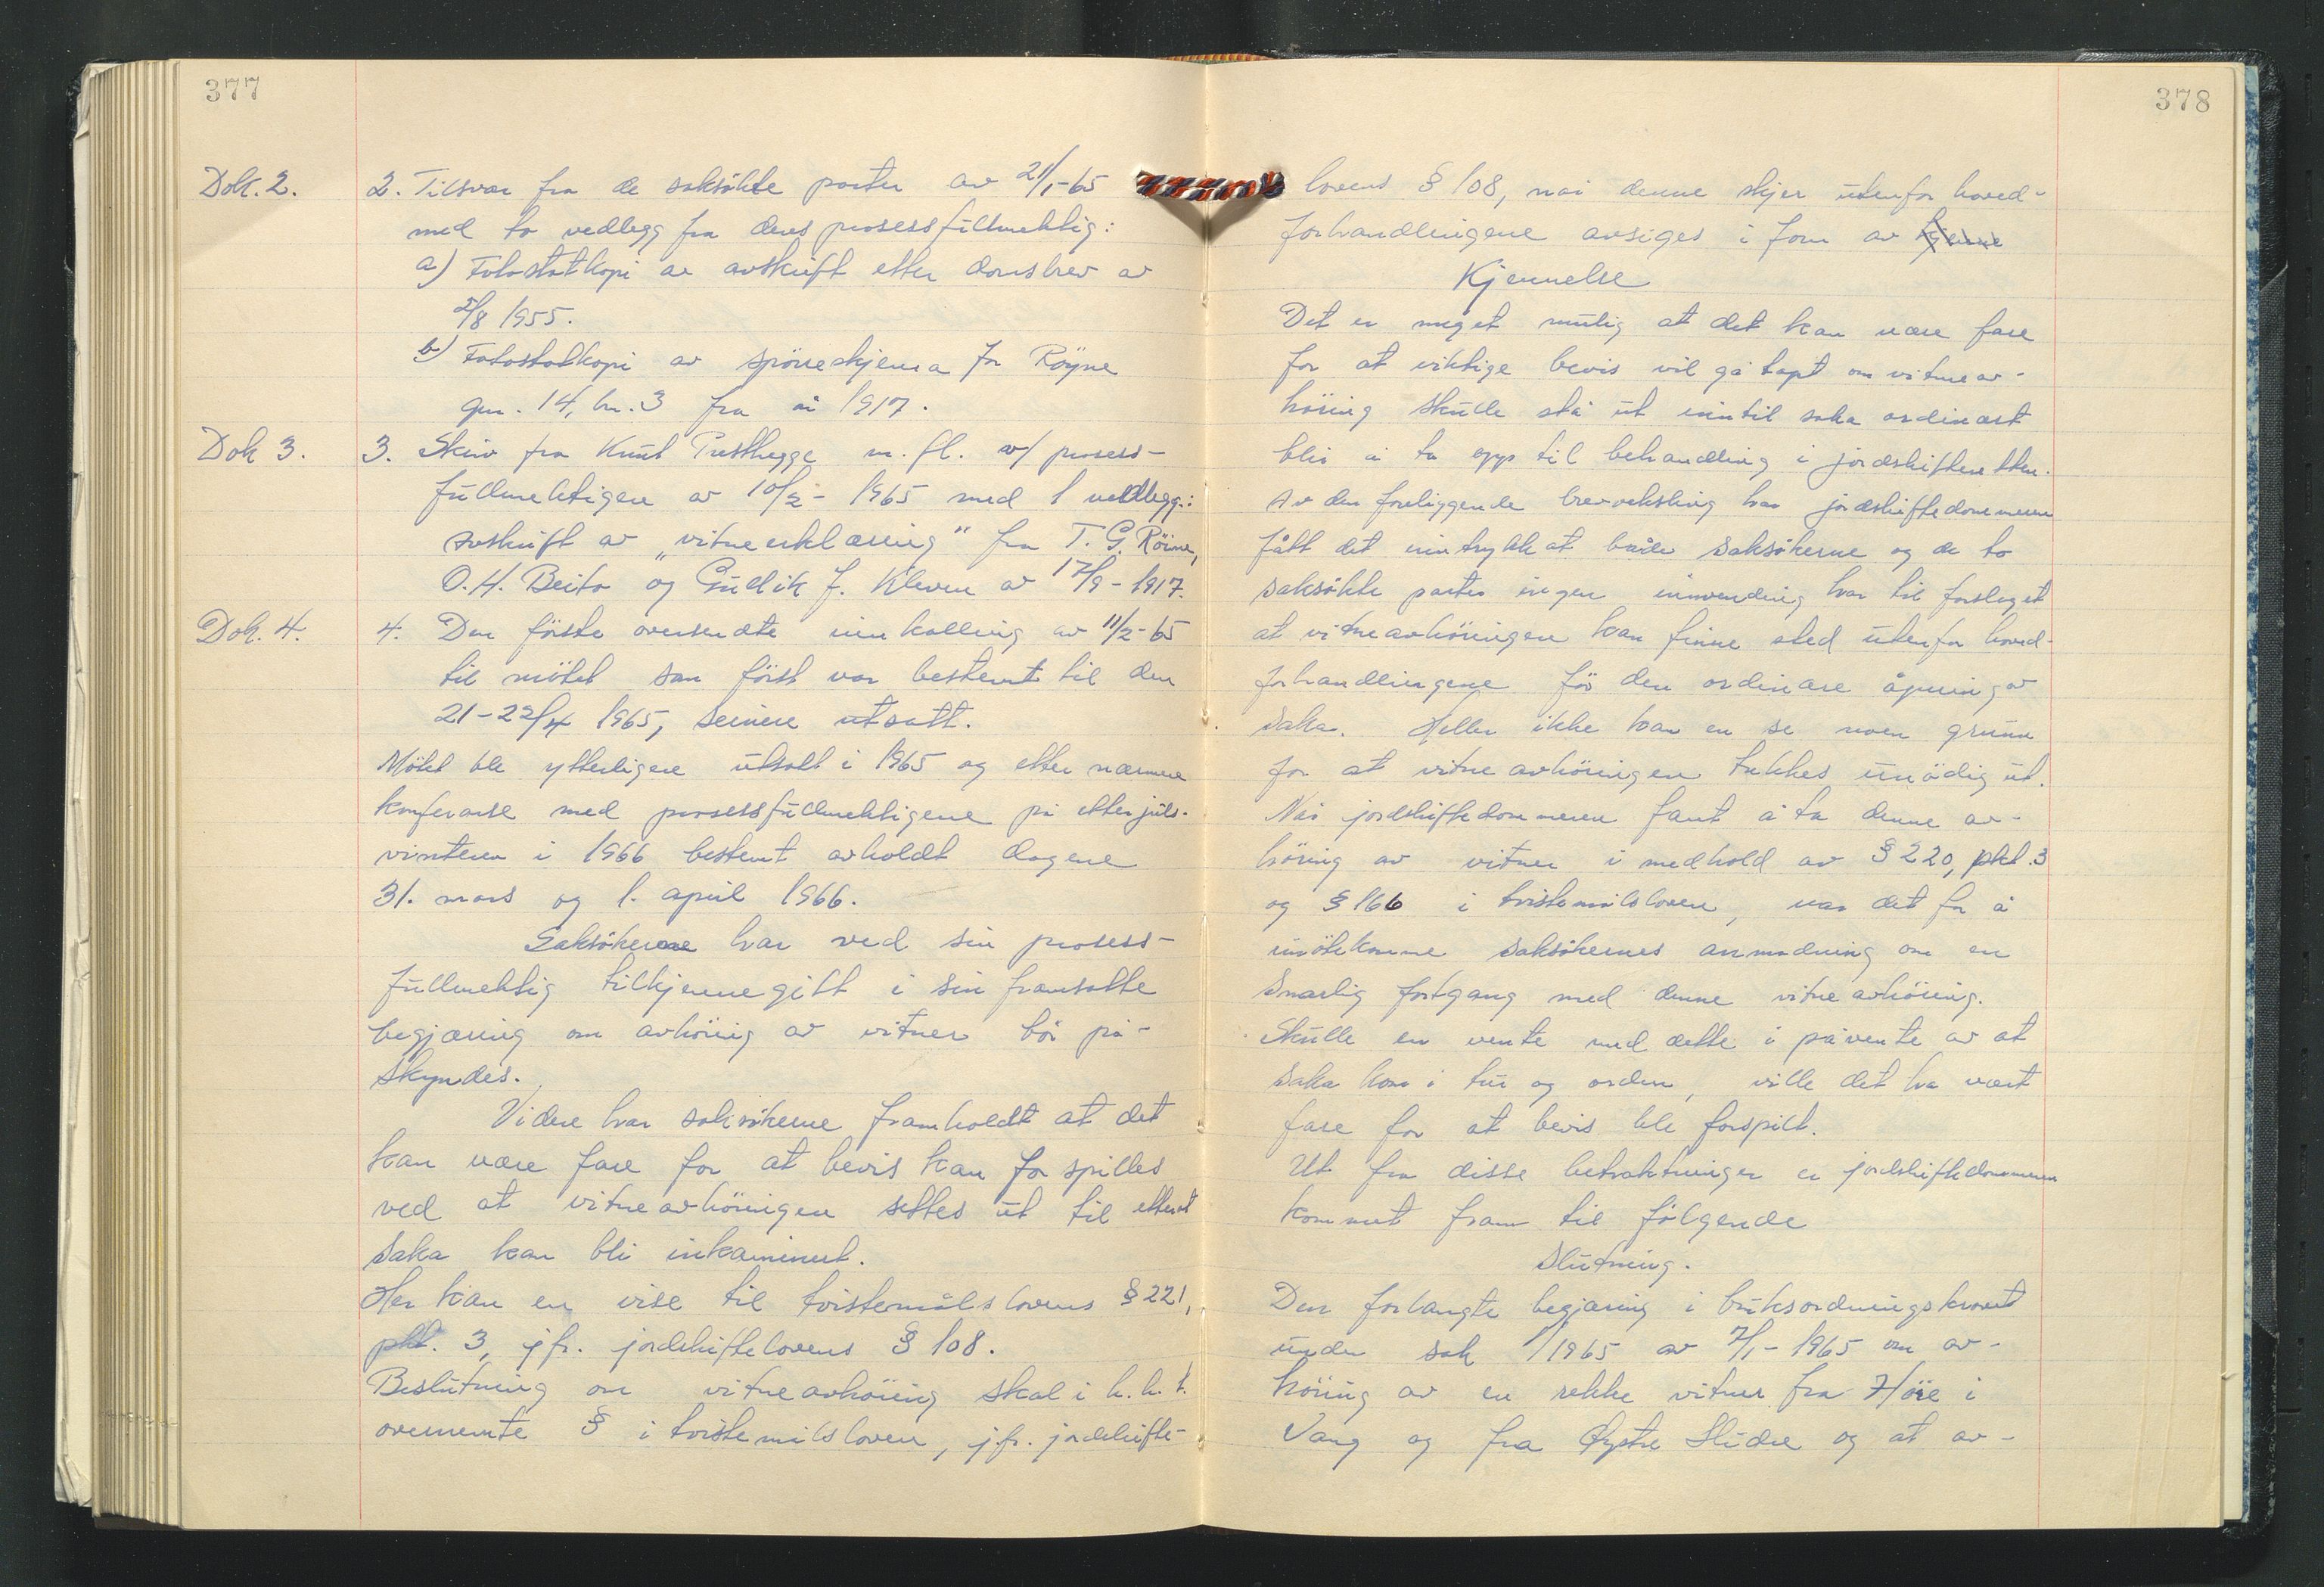 377
Dok. 2.
2. Tilsvar fra de saksökte parter av 21/1-65
med to vedlegg fra deres prosessfullmektig:
a) Fotostatkopi av avskrift etter domsbrev av
2/8 1955.
b) Fotostatkopi av spörreskjema for Röyne
gnr. 14, bnr. 3 fra år 1917.
Dok 3.
3. Skriv fra Knut Presthegge m. fl. v/ prosess-
fullmektigen av 10/2- 1965 med 1 vedlegg:
avskrift av „vitneerklæring" fra T. G. Röine,
O. H. Beito og Gudik J. Kleven av 17/9 - 1917.
Dok. 4.
4. Den förste oversendte innkalling av 11/2-65
til mötet som först var bestemt til den
21-22/4 1965, seinere utsatt.
Mötet ble ytterligere utsatt i 1965 og etter nærmere
konferanse med prosessfullmektigene på etterjuls-
vinteren i 1966 bestemt avholdt dagene
31. mars og 1. april 1966.
Saksökerne har ved sin prosess-
fullmektig tilkjennegitt i sin framsatte
begjæring om avhöring av vitner bör på-
skyndes.
Videre har saksökerne framholdt at det
kan være fare for at bevis kan forspilles
ved at vitneavhöringen settes ut til etter at
saka kan bli inkaminert.
Her kan en vise til tvistemålslovens § 221,
pkt. 3, jfr. jordskiftelovens § 108.
Beslutning om vitneavhöring skal i h.h.t.
ovennemte § i tvistemålsloven, jfr. jordskifte-
378
lovens § 108, når denne skjer utenfor hoved-
forhandlingene avsiges i form av kjenne
Kjennelse
Det er meget mulig at det kan være fare
for at viktige bevis vil gå tapt om vitneav-
höring skulle stå ut inntil saka ordinært
blir å ta opp til behandling i jordskifteretten.
Av den foreliggende brevveksling har jordskiftedommeren
fått det inntrykk at både saksökerne og de to
saksökte parter ingen innvending har til forslaget
at vitneavhöringen kan finne sted utenfor hoved-
forhandlingene för den ordinære åpning av
saka. Heller ikke kan en se noen grunn
for at vitneavhöringen trekkes unödig ut.
Når jordskiftedommeren fant å ta denne av-
höring av vitner i medhold av § 220, pkt. 3
og § 166 i tvistemålsloven, var det for å
imötekomme saksökernes anmodning om en
snarlig fortgang med denne vitneavhöring.
Skulle en vente med dette i påvente av at
saka kom i tur og orden, ville det ha vært
fare for at bevis ble forspilt.
Ut fra disse betraktninger er jordskiftedommeren
kommet fram til fölgende
Slutning.
Den forlangte begjæring i bruksordningskravet
under sak 1/1965 av 7/1- 1965 om av-
höring av en rekke vitner fra Höre i
Vang og fra Øystre Slidre og at av-